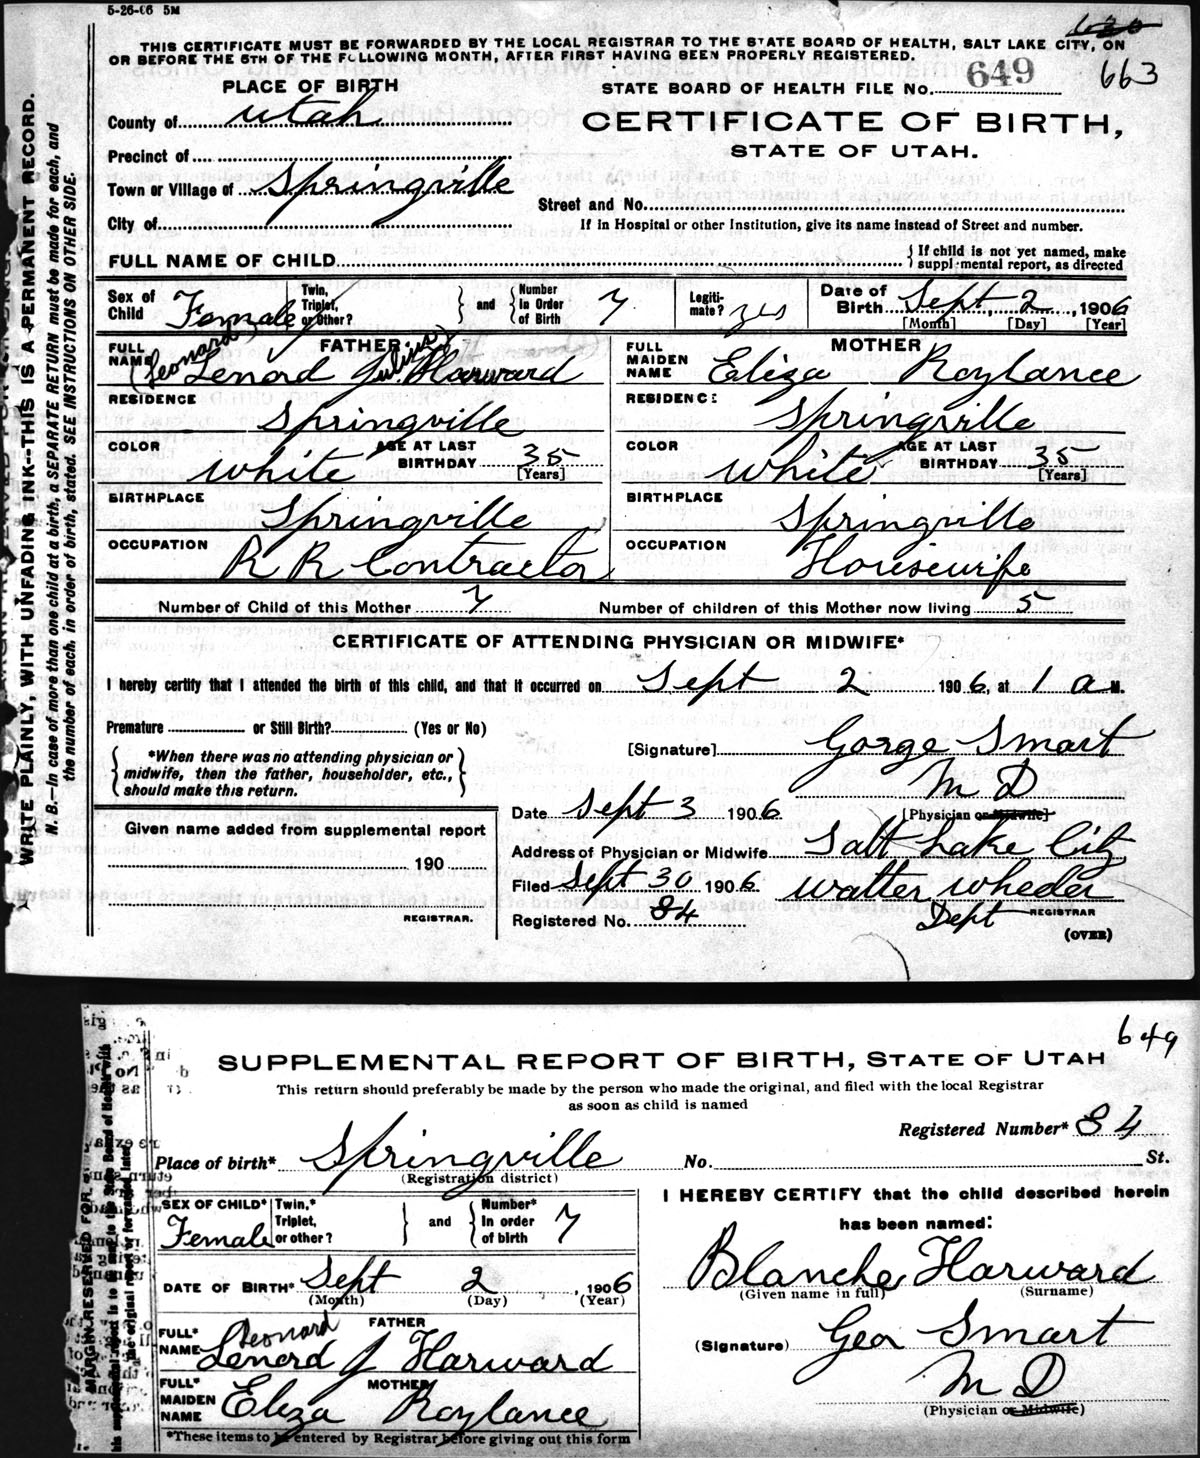 5-26-06 5M
630
THIS CERTIFICATE MUST BE FORWARDED BY THE LOCAL REGISTRAR TO THE STATE BOARD OF HEALTH, SALT LAKE CITY, ON
OR BEFORE THE 5TH OF THE FOLLOWING MONTH, AFTER FIRST HAVING BEEN PROPERLY REGISTERED.
663
PLACE OF BIRTH
STATE BOARD OF HEALTH FILE No. 649
County of Utah
CERTIFICATE OF BIRTH,
STATE OF UTAH.
Precinct of
Town or Village of Springville
Street and No.
City of
If in Hospital or other Institution, give its name instead of Street and number.
FULL NAME OF CHILD
If child is not yet named, make
supplemental report, as directed
Sex of Child Female
Twin, Triplet, or Other?
and
Number In Order of Birth 7
Legiti-mate? yes
Date of Birth Sept 2, 1906
[Month] [Day] [Year]
FATHER
FULL NAME (Leonard Julius)
Lenord J. Harward
RESIDENCE
Springville
COLOR White
AGE AT LAST BIRTHDAY 35
[Years]
BIRTHPLACE
Springville
OCCUPATION R R Contractor
MOTHER
FULL MAIDEN NAME Eliza Roylance
RESIDENCE
Springville
COLOR White
AGE AT LAST BIRTHDAY 35
[Years]
BIRTHPLACE
Springville
OCCUPATION Housewife
Number of Child of this Mother 7
Number of children of this Mother now living 5
CERTIFICATE OF ATTENDING PHYSICIAN OR MIDWIFE*
I hereby certify that I attended the birth of this child, and that it occurred on Sept 2 1906, at 1 a M.
Premature or Still Birth? (Yes or No)
*When there was no attending physician or
midwife, then the father, householder, etc.,
should make this return.
[Signature] Gorge Smart
M D
[Physician or Midwife]
Date Sept 3 1906
Given name added from supplemental report
190
REGISTRAR.
Address of Physician or Midwife Salt Lake City
Filed Sept 30 1906 Walter Wheeler
Registered No. 84
Dept REGISTRAR
(OVER)
WRITE PLAINLY, WITH UNFADING INK—THIS IS A PERMANENT RECORD.
N. B.—In case of more than one child at a birth, a SEPARATE RETURN must be made for each, and
the number of each, in order of birth, stated. SEE INSTRUCTIONS ON OTHER SIDE.
649
SUPPLEMENTAL REPORT OF BIRTH, STATE OF UTAH
This return should preferably be made by the person who made the original, and filed with the local Registrar
as soon as child is named
Registered Number* 84
Place of birth* Springville No. St.
(Registration district)
SEX OF CHILD* Female
Twin,* Triplet, or other?
and
Number* In order of birth 7
DATE OF BIRTH* Sept 2, 1906
(Month) (Day) (Year)
FATHER
Leonard
FULL* NAME Lenord J Harward
MOTHER
FULL* MAIDEN NAME Eliza Roylance
*These items to be entered by Registrar before giving out this form
I HEREBY CERTIFY that the child described herein
has been named:
Blanche Harward
(Given name in full) (Surname)
(Signature) Geo Smart
M D
(Physician or Midwife)
MARGIN RESERVED FOR